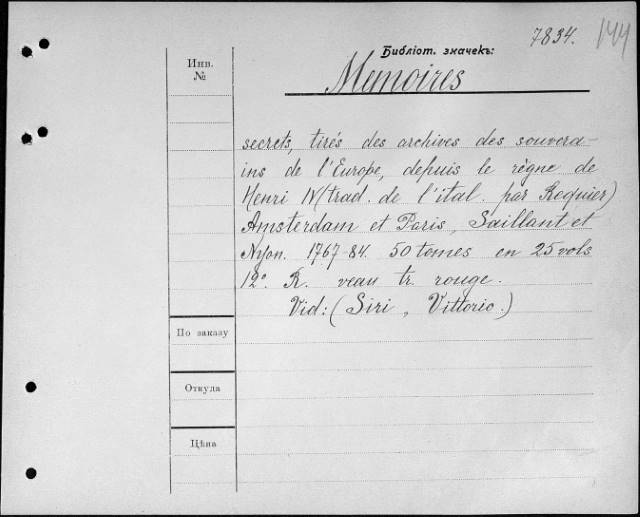 7834. 144
Библіот. значекъ:
Инв.
№
Memoires
secrets, tirés des archives des souvera-
ins de l'Europe, depuis le règne de
Henri IV (trad. de l'ital. par Requier)
Amsterdam et Paris, Saillant et
Nyon. 1767-84. 50 tomes en 25 vols
12º. R. veau tr. rouge.
Vid: (Siri, Vittorio.)
По заказу
Откуда
Цѣна